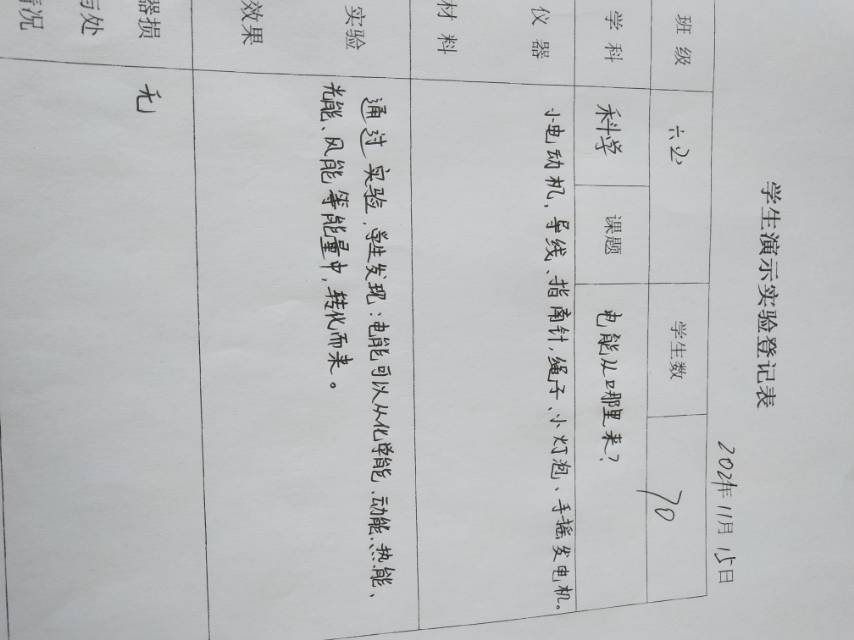 学生演示实验登记表
202年11月15日
班级 六(2) 学生数 70
学科 科学 课题 电能从哪里来?
仪器 小电动机,导线、指南针,绳子、小灯泡、手摇发电机。
材料
实验 通过实验,学生发现:电能可以从化学能、动能、热能、
光能、风能等能量中,转化而来。
效果
器损 无
与处
情况